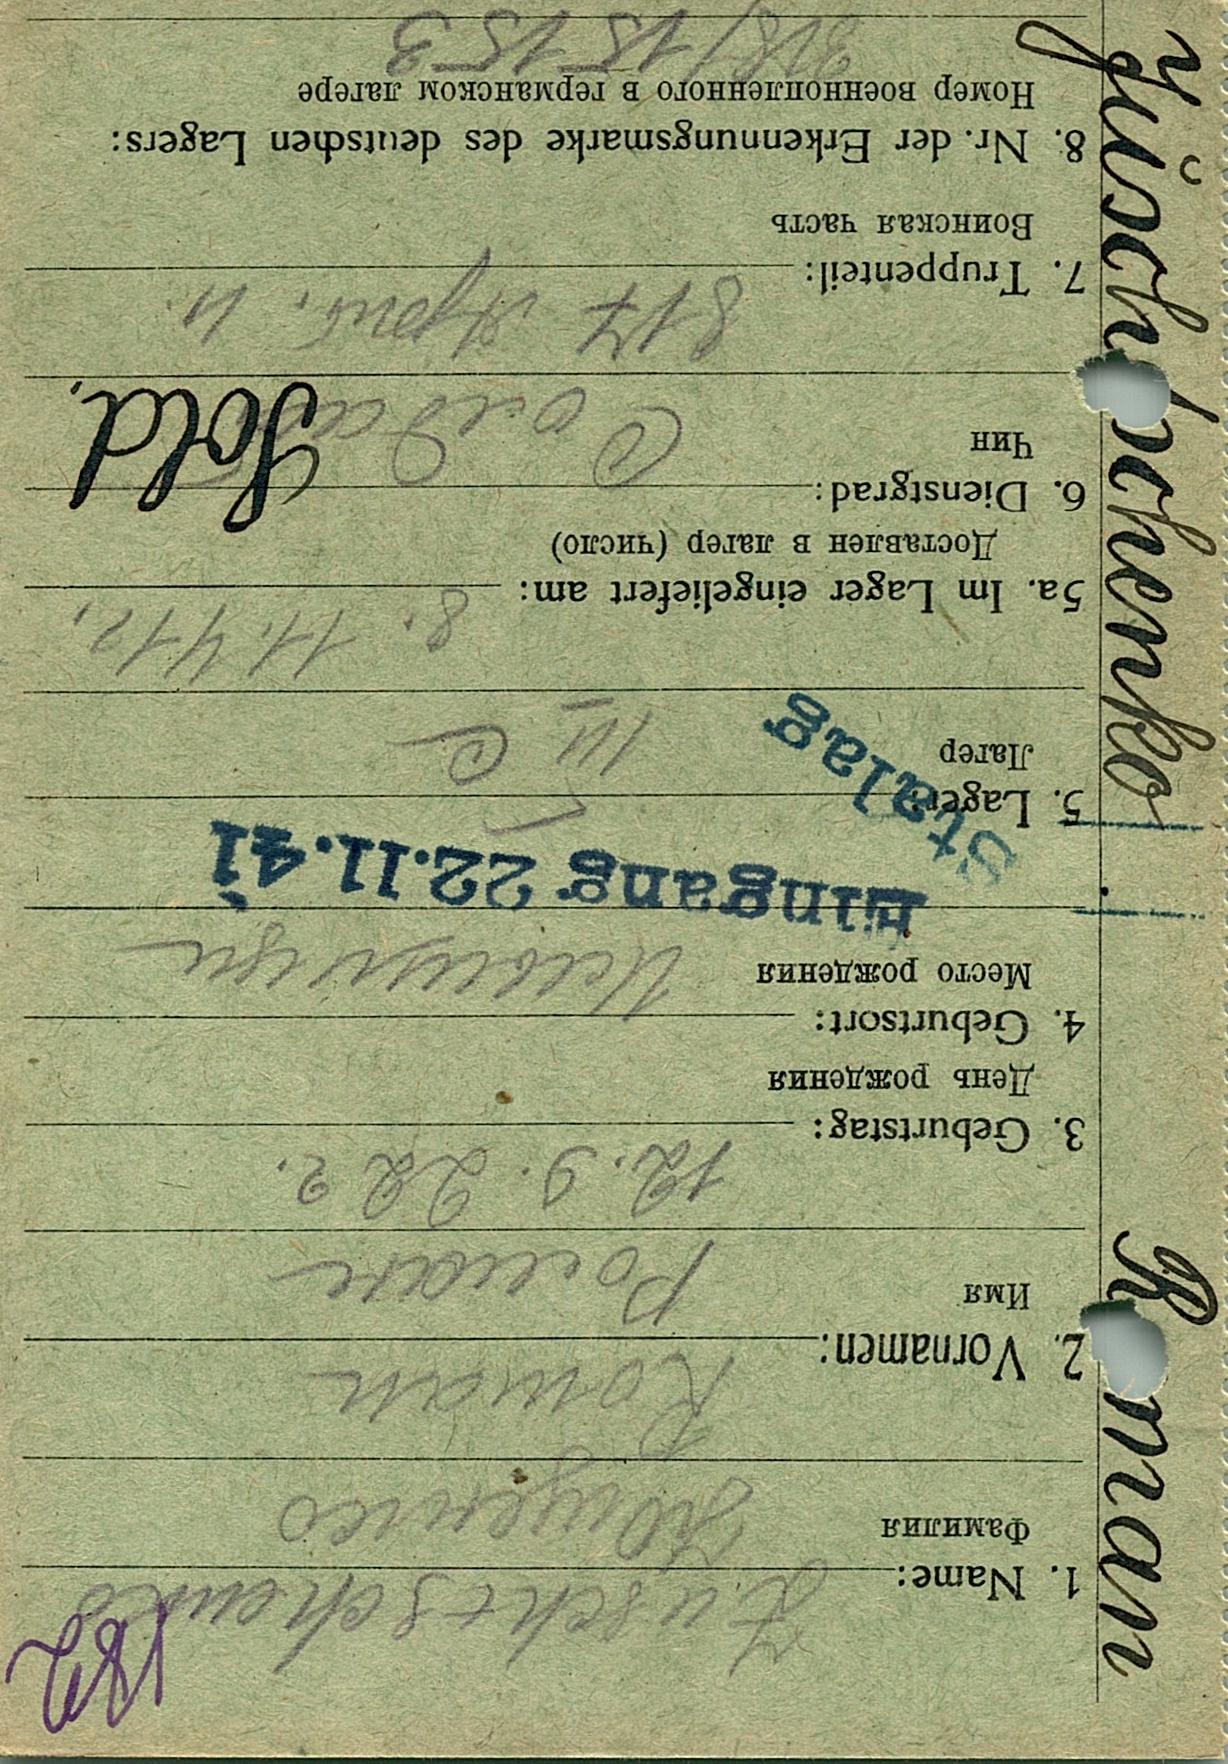 182
1. Name:
Фамилия
2. Vornamen: Roman
Имя Роман
3. Geburtstag: 12.9.22 г.
День рождения
4. Geburtsort:
Место рождения
Eingang 22.11.41
Stalag
5. Lager:
Лагер III C
5a. Im Lager eingeliefert am: 8.11.41 г.
Доставлен в лагер (число)
6. Dienstgrad: Солдат Sold.
Чин
7. Truppenteil: 817
Воинская часть
8. Nr. der Erkennungsmarke des deutschen Lagers:
Номер военнопленного в германском лагере
318/15153
Roman